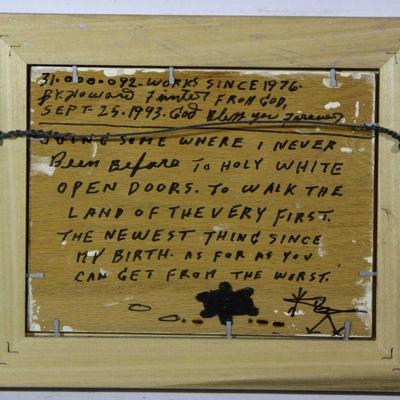 31.000.092. WORKS SINCE 1976.
BY. Howard Finster FROM GOD,
SEPT. 25. 1993. God Bless you Forever
GOING SOME WHERE I NEVER
Been Before TO HOLY WHITE
OPEN DOORS. TO WALK THE
LAND OF THE VERY FIRST.
THE NEWEST THING SINCE
MY BIRTH. AS FOR AS YOU
CAN GET FROM THE WORST.